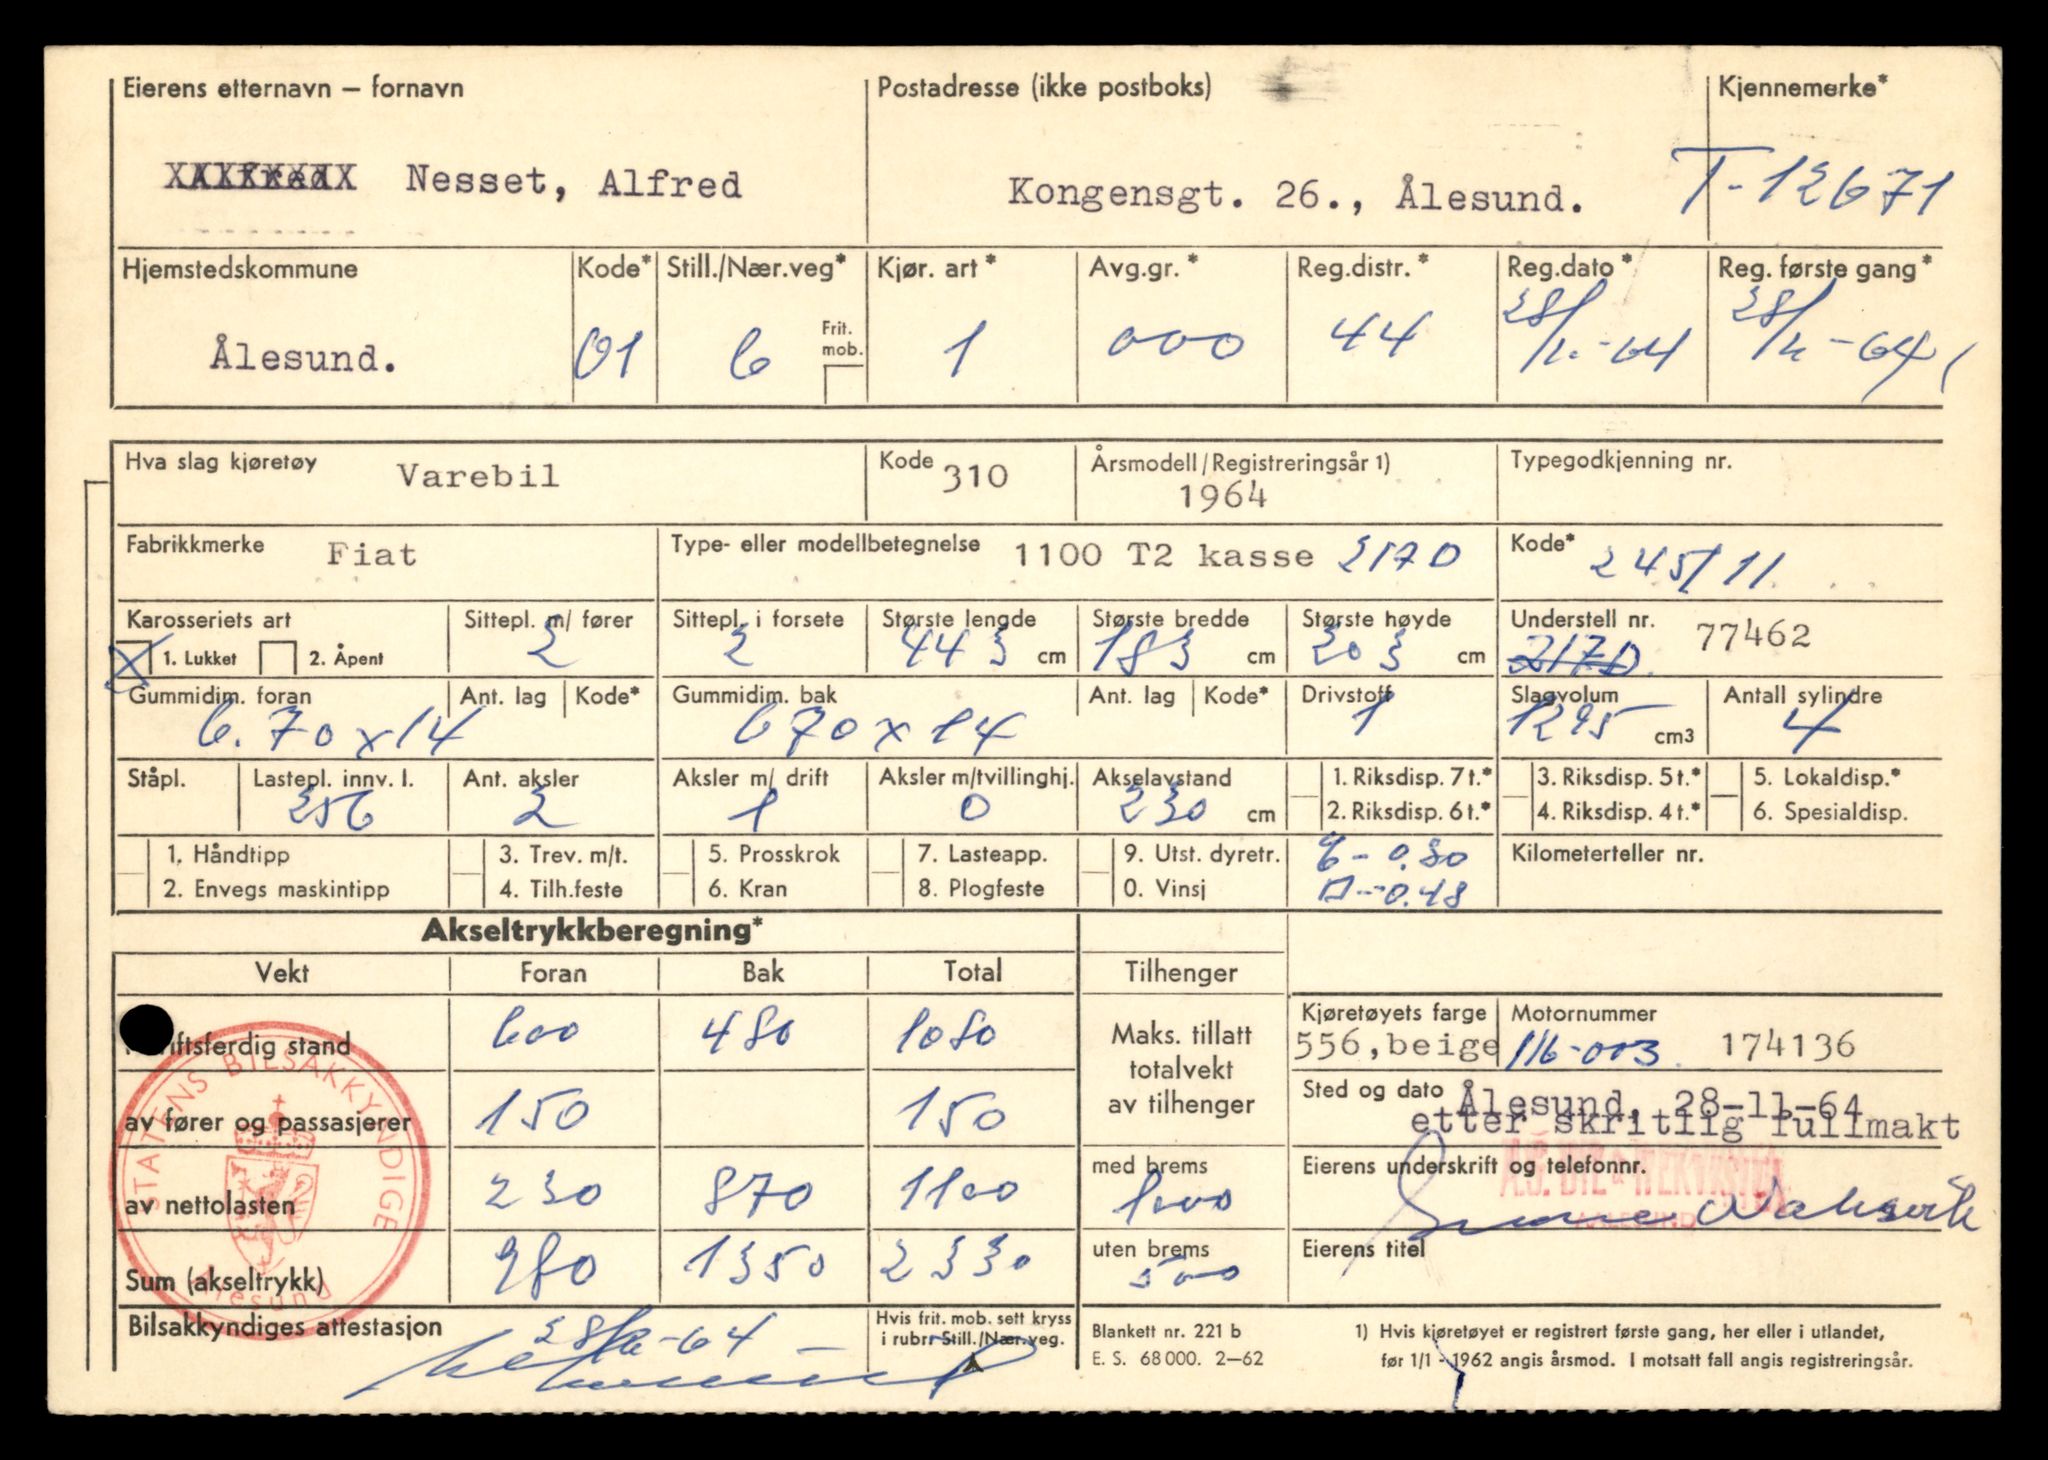 Eierens etternavn – fornavn Postadresse (ikke postboks) Kjennemerke*
Nesset, Alfred Kongensgt. 26., Ålesund. T-12671
Hjemstedskommune Kode* Still./Nær.veg* Kjør. art* Avg.gr.* Reg.distr.* Reg.dato* Reg. første gang*
Ålesund. 01 6 Frit. mob. 1 000 44 28/ -64 28/ -64
Hva slag kjøretøy Varebil Kode 310 Årsmodell/Registreringsår 1) 1964 Typegodkjenning nr.
Fabrikkmerke Fiat Type- eller modellbetegnelse 1100 T2 kasse 217D Kode* 245/11.
Karosseriets art Sittepl. m/ fører Sittepl. i forsete Største lengde Største bredde Største høyde Understell nr. 77462
X 1. Lukket 2. Åpent 2 2 443 cm 183 cm 203 cm 217D.
Gummidim. foran Ant. lag Kode* Gummidim. bak Ant. lag Kode* Drivstoff Slagvolum Antall sylindre
6.70x14 670x14 1 1295 cm3 4
Ståpl. Lastepl. innv. l. Ant. aksler Aksler m/ drift Aksler m/tvillinghj. Akselavstand 1. Riksdisp. 7 t.* 3. Riksdisp. 5 t.* 5. Lokaldisp.*
256 2 1 0 230 cm 2. Riksdisp. 6 t.* 4. Riksdisp. 4 t.* 6. Spesialdisp.
1. Håndtipp 3. Trev. m/t. 5. Prosskrok 7. Lasteapp. 9. Utst. dyretr. - 0.80 Kilometerteller nr.
2. Envegs maskintipp 4. Tilh.feste 6. Kran 8. Plogfeste 0. Vinsj 0.48
Akseltrykkberegning*
Vekt Foran Bak Total Tilhenger
stand 600 480 1080 Maks. tillatt totalvekt av tilhenger Kjøretøyets farge 556,beige Motornummer 116-003. 174136
av fører og passasjerer 150 150 Sted og dato Ålesund, 28-11-64
etter skritlig fullmakt
av nettolasten 230 870 1100 med brems 1000 Eierens underskrift og telefonnr.
Sum (akseltrykk) 980 1350 2330 uten brems 500 Eierens titel
STATENS BILSAKKYNDIGE
Ålesund
Bilsakkyndiges attestasjon -64 Hvis frit. mob. sett kryss i rubr. Still./Nær.veg.
Blankett nr. 221 b 1) Hvis kjøretøyet er registrert første gang, her eller i utlandet,
E. S. 68 000. 2–62 før 1/1 - 1962 angis årsmod. I motsatt fall angis registreringsår.